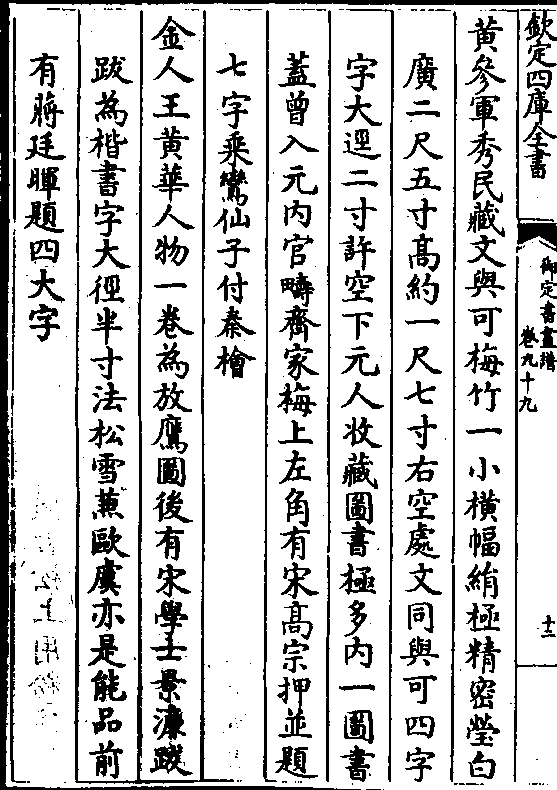 欽定四庫全書
御定書畫譜
卷九十九
十二
黄參軍秀民藏文與可梅竹一小橫幅絹極精密瑩白
廣二尺五寸髙約一尺七寸右空處文同與可四字
字大逕二寸許空下元人收藏圖書極多内一圖書
蓋曾入元内官疇齋家梅上左角有宋髙宗押並題
七字乘鸞仙子付秦檜
金人王黄華人物一卷為放鷹圖後有宋學士景濂跋
跋為楷書字大徑半寸法松雪蒹歐虞亦是能品前
有蔣廷暉題四大字